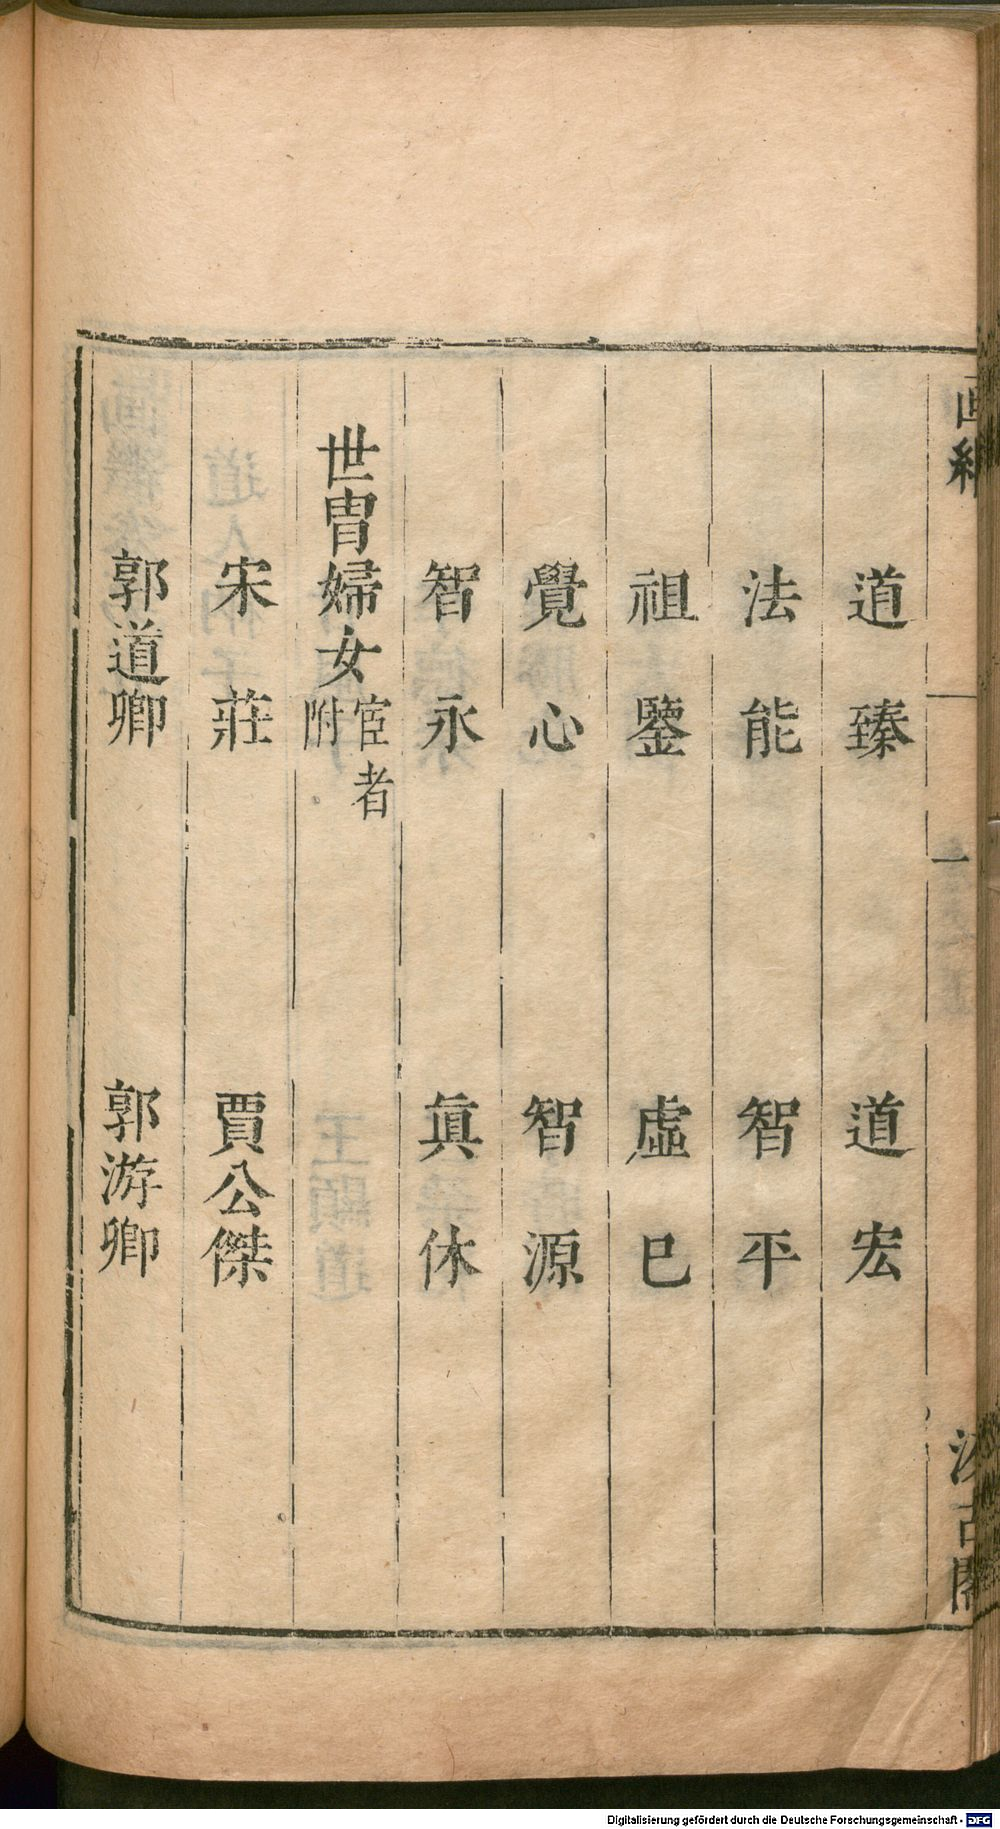 道臻　道宏
法能　智平
祖鑒　虛已
覺心　智源
智永　眞休
世冑婦女宦者附
宋莊　賈公傑
郭道卿　郭游卿
一
汲古閣
Digitalisierung gefördert durch die Deutsche Forschungsgemeinschaft - DFG